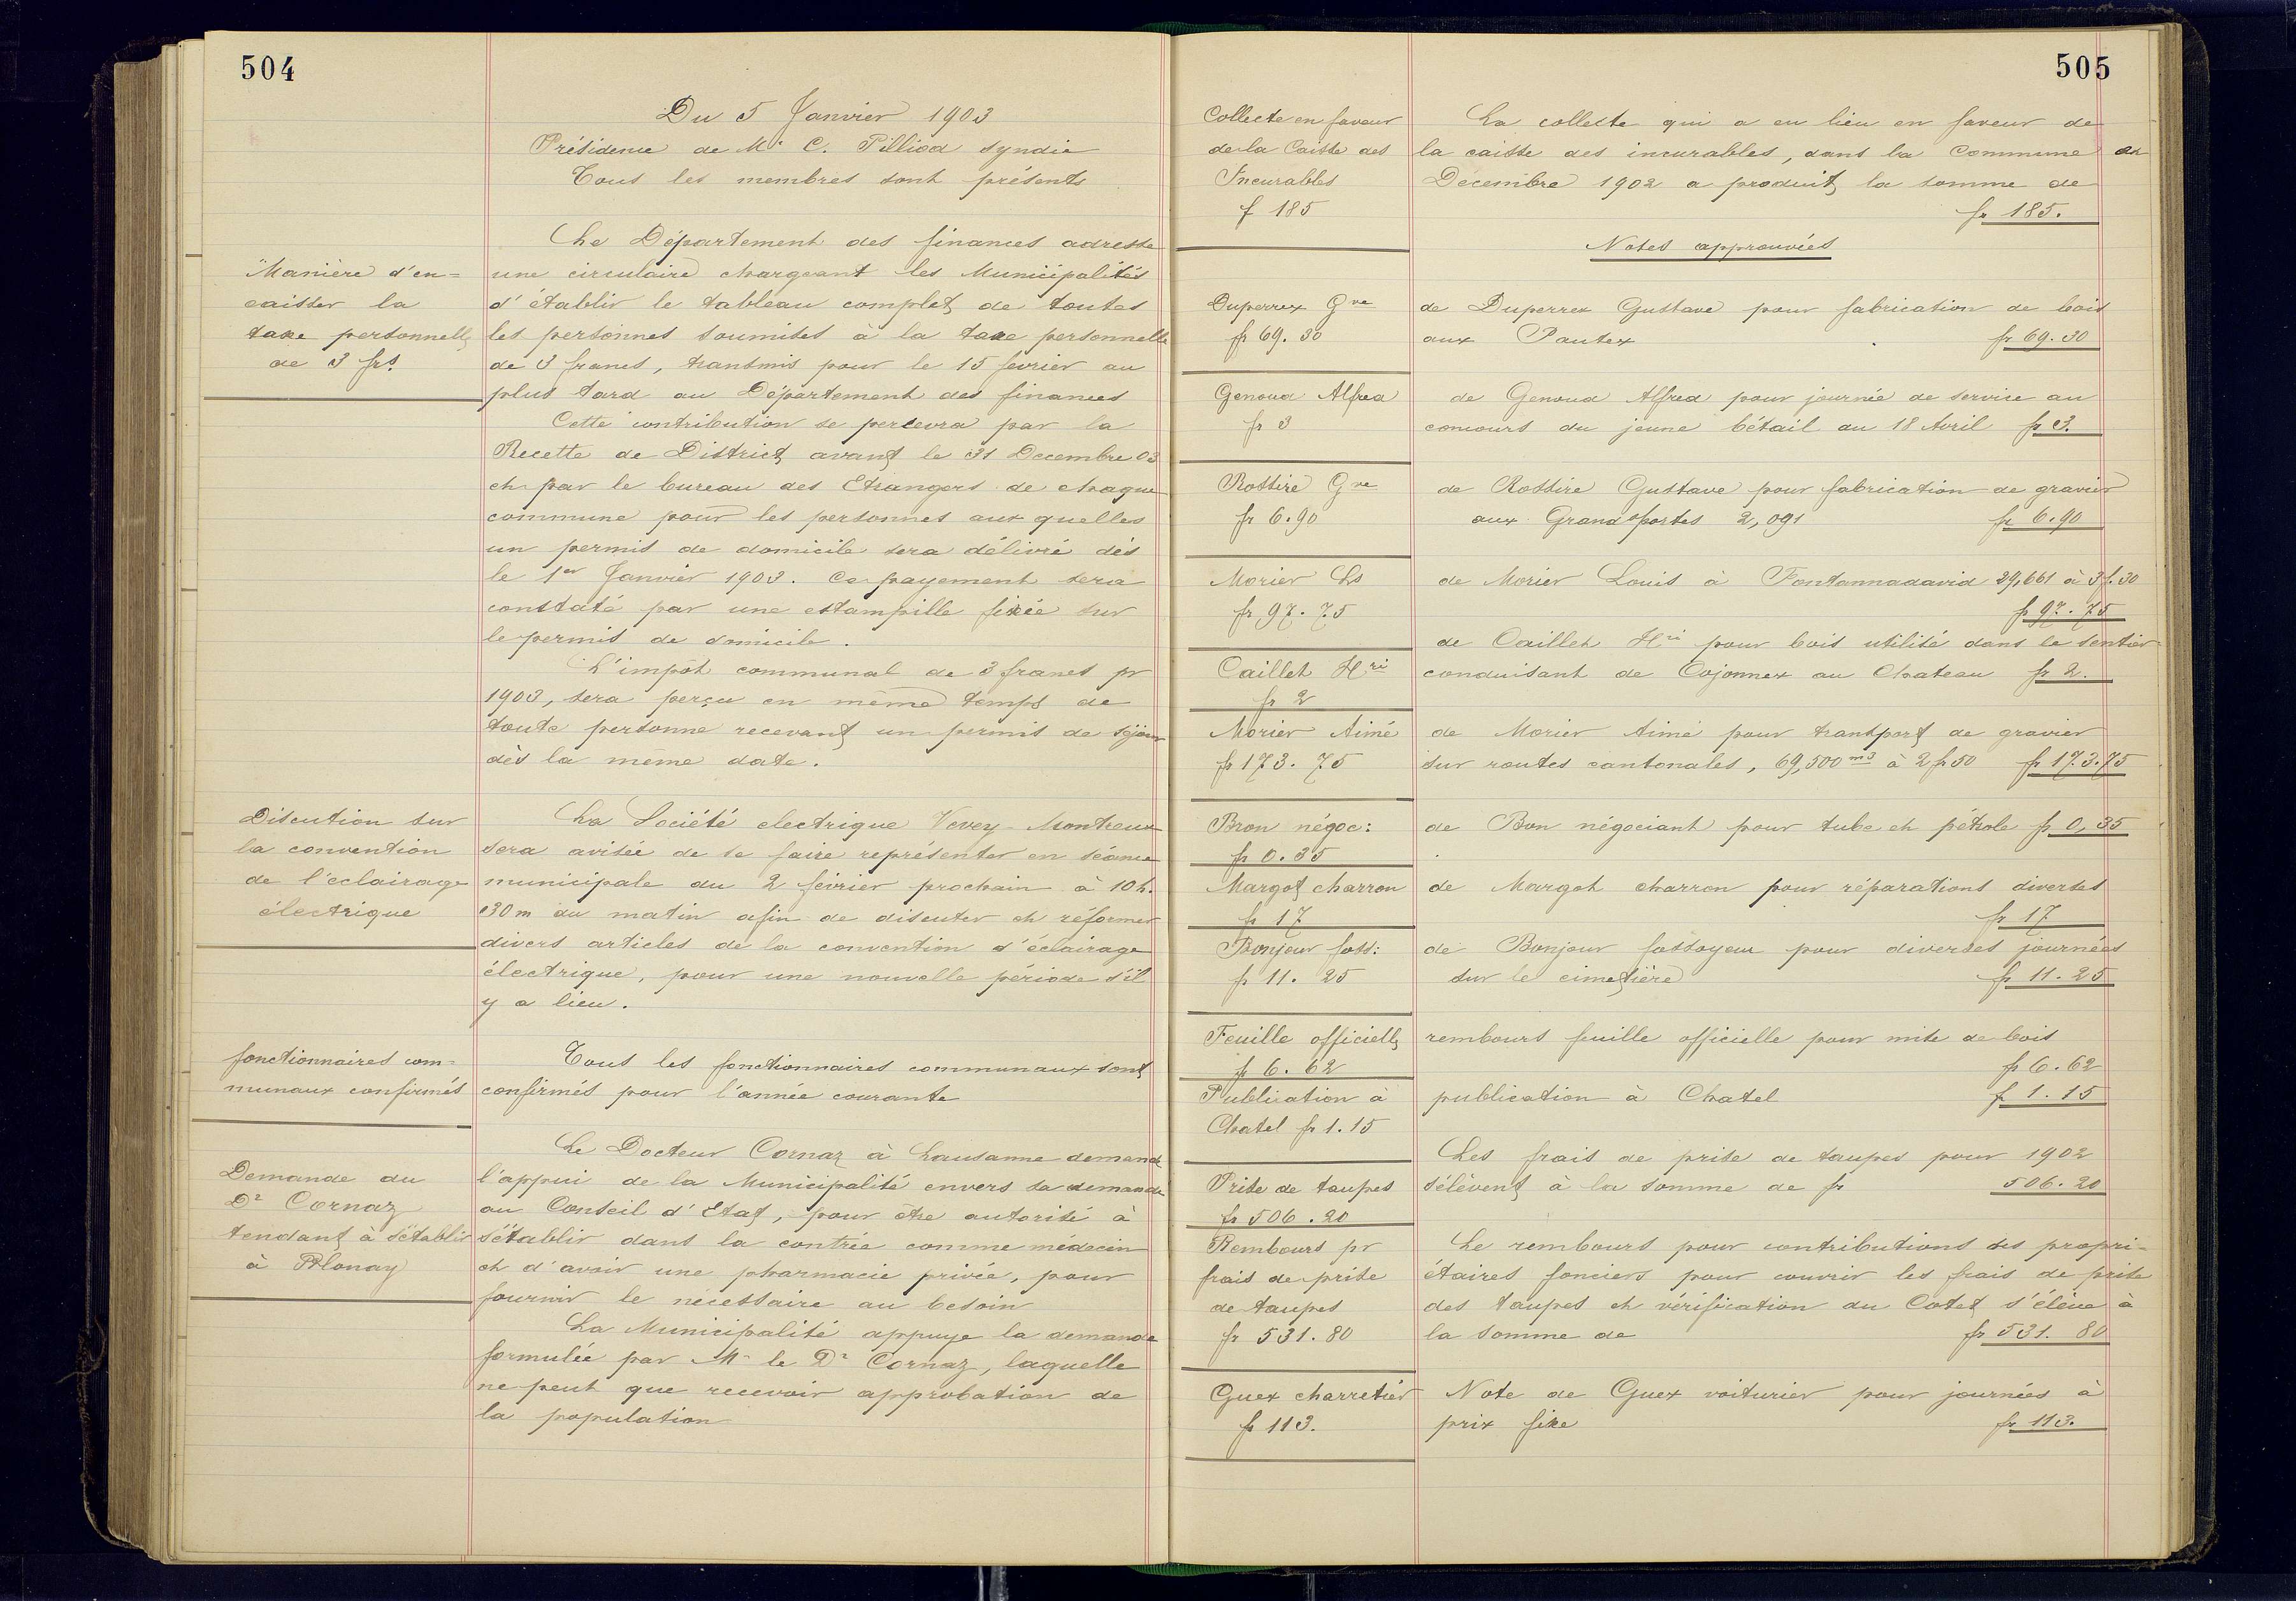 504
Du 5 Janvier 1903
Présidence de Mr C. Pilliod syndic
Tous les membres sont présents
Manière d'en=
caisser la
taxe personnelle
de 3 frs.
Le Département des finances adresse
une circulaire chargeant les Municipalités
d'établir le tableau complet de toutes
les personnes soumises à la taxe personnelle
de 3 francs, transmis pour le 15 fevrier au
plus tard au Département des finances
Cette contribution se percevra par la
Recette de District avant le 31 Decembre 03
et par le bureau des Etrangers de chaque
commune pour les personnes aux quelles
un permis de domicile sera délivré dès
le 1er Janvier 1903. Ce payement sera
constaté par une estampille fixée sur
le permis de domicile.
L'impôt communal de 3 francs pr
1903, sera perçu en même temps de
toute personne recevant un permis de séjour
dès la même date.
Discution sur
la convention
de l'eclairage
électrique
La Société electrique Vevey-Montreux
sera avisée de se faire représenter en séance
municipale du 2 février prochain à 10 h.
30 m du matin afin de discuter et réformer
divers articles de la convention d'éclairage
électrique, pour une nouvelle période s'il
y a lieu.
fonctionnaires com=
munaux confirmés
Tous les fonctionnaires communaux sont
confirmés pour l'année courante
Demande du
Dr Cornaz
tendant à s'établir
à Blonay
Le Docteur Cornaz à Lausanne demande
l'appui de la Municipalité envers sa demande
au Conseil d'Etat, pour être autorisé à
s'établir dans la contrée comme médecin
et d'avoir une pharmacie privée, pour
fournir le nécessaire au besoin
La Municipalité appuye la demande
formulée par Mr le Dr Cornaz, laquelle
ne peut que recevoir approbation de
la population
505
Collecte en faveur
de la Caisse des
Incurables
f 185
La collecte qui a eu lieu en faveur de
la caisse des incurables, dans la Commune en
Décembre 1902 a produit la somme de
fr 185.
Notes approuvées
Duperrex Gve
fr 69.30
de Duperrex Gustave pour fabrication de bois
aux Pautex fr 69.30
Genoud Alfred
fr 3
de Genoud Alfred pour journée de service au
concours du jeune bétail au 18 Avril fr 3.
Rossire Gve
fr 6.90
de Rossire Gustave pour fabrication de gravier
aux Grands portes 2,091 fr 6.90
Morier Ls
fr 97.75
de Morier Louis à Fontannadavid 29,661 à 3 f.30
fr 97.75
Caillet Hri
fr 2
de Caillet Hri pour bois utilité dans le sentier
conduisant de Cojonnex au Chateau fr 2.
Morier Aimé
fr 173.75
de Morier Aimé pour transport de gravier
sur routes cantonales, 69,500 m3 à 2 fr 50 fr 173.75
Bron négoc:
fr 0.35
de Bron négociant pour tube et pétrole fr 0,35
Margot charron
fr 17
de Margot charron pour réparations diverses
fr 17
Bonjour foss:
fr 11.25
de Bonjour fossoyeur pour diverses journées
sur le cimetière fr 11.25
Feuille officielle
fr 6.62
rembours feuille officielle pour mise de bois
fr 6.62
Publication à
Chatel fr 1.15
publication à Chatel f 1.15
Prise de taupes
fr 506.20
Les frais de prise de taupes pour 1902
s'élèvent à la somme de fr 506.20
Rembours pr
frais de prise
de taupes
fr 531.80
Le rembours pour contributions des propri=
étaires fonciers pour couvrir les frais de prise
des taupes et vérification du Catet s'élève à
la somme de fr 531.80
Guex charretier
fr 113.
Note de Guex voiturier pour journées à
prix fixe fr 113.